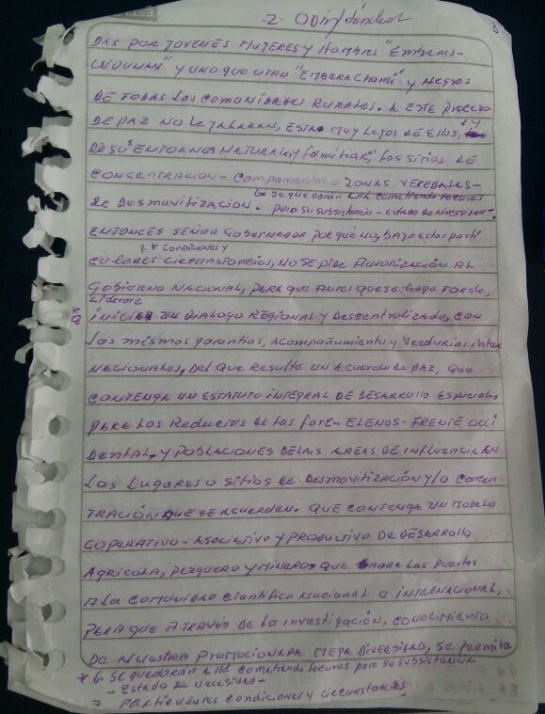 -2- Odin Sánchez
8
DAS POR JOVENES MUJERES y HOMBRES "EMBERAS-
WOUNAN" y UNO QUE OTRO "EMBERA CHAMI" y NEGROS
DE TODAS LAS COMUNIDADES RURALES. A ESTE PROCESO
DE PAZ NO LE JALARAN, ESTA MUY LEJOS DE ELLOS, y
DE SUS ENTORNOS NATURAL y familiar, LOS SITIOS DE
CONCENTRACION - CAMPAMENTOS o ZONAS VEREDALES -
6* se quedarán allá cometiendo locuras
DE DESMOVILIZACION. para su subsistencia - estado de necesidad -
ENTONCES SEÑOR GOBERNADOR PORQUE NO, BAJO ESTAS PARTI
7 * condiciones y
CULARES CIRCUNSTANCIAS, NO SE PIDE AUTORIZACIÓN AL
GOBIERNO NACIONAL, PARA QUE ANTES QUE SE HAGA TARDE,
LIDERE
INICIE UN DIALOGO REGIONAL y Descentralizado, CON
LAS MISMAS garantias, Acompañamiento y VEEDURIAS INTER
NACIONALES, DEL QUE RESULTE UN ACUERDO DE PAZ, QUE
CONTENGA UN ESTATUTO INTEGRAL DE DESARROLLO ESPECIAL,
PARA LOS Reductos de las farc. ELENOS - FRENTE OCCI
DENTAL, y POBLACIONES DE LAS AREAS DE INFLUENCIA EN
LOS LUGARES O SITIOS DE DESMOVILIZACIÓN y/o CONCEN
TRACIÓN QUE SE ACUERDEN. QUE CONTENGA UN MODELO
COPERATIVO - ASOCIATIVO y PRODUCTIVO DE DESARROLLO
AGRICOLA, PESQUERO y MINERO, QUE ABRA LAS PUERTAS
A LA COMUNIDAD Cientifica Nacional e INTERNACIONAL,
PARA QUE A TRAVÉS DE LA INVESTIGACIÓN, CONOCIMIENTO
DE NUESTRA PROMOCIONADA MEGA DIVERSIDAD, SE PERMITA
* 6 SE quedarán allá cometiendo locuras para su subsistencia
- Estado de necesidad -
7 Particulares condiciones y circunstancias